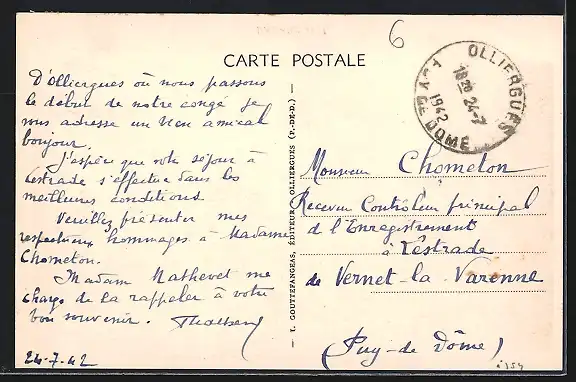 6
CARTE POSTALE
OLLIERGUES
18 20 24-7
1942
PUY DE DOME
D'Olliergues où nous passons
le début de notre congé je
vous adresse un bien amical
bonjour.
J'espère que votre séjour à
Lestrade s'effectue dans les
meilleures conditions
Veuillez présenter mes
respectueux hommages à Madame
Chometon.
Madame Mathevet me
charge de la rappeler à votre
bon souvenir.
24-7-42
— I. GOUTTEFANGEAS, ÉDITEUR, OLLIERGUES (P.-DE-D.) —
Monsieur Chometon
Receveur Contrôleur principal
de l'Enregistrement
à Lestrade
de Vernet-la-Varenne
(Puy-de Dôme)